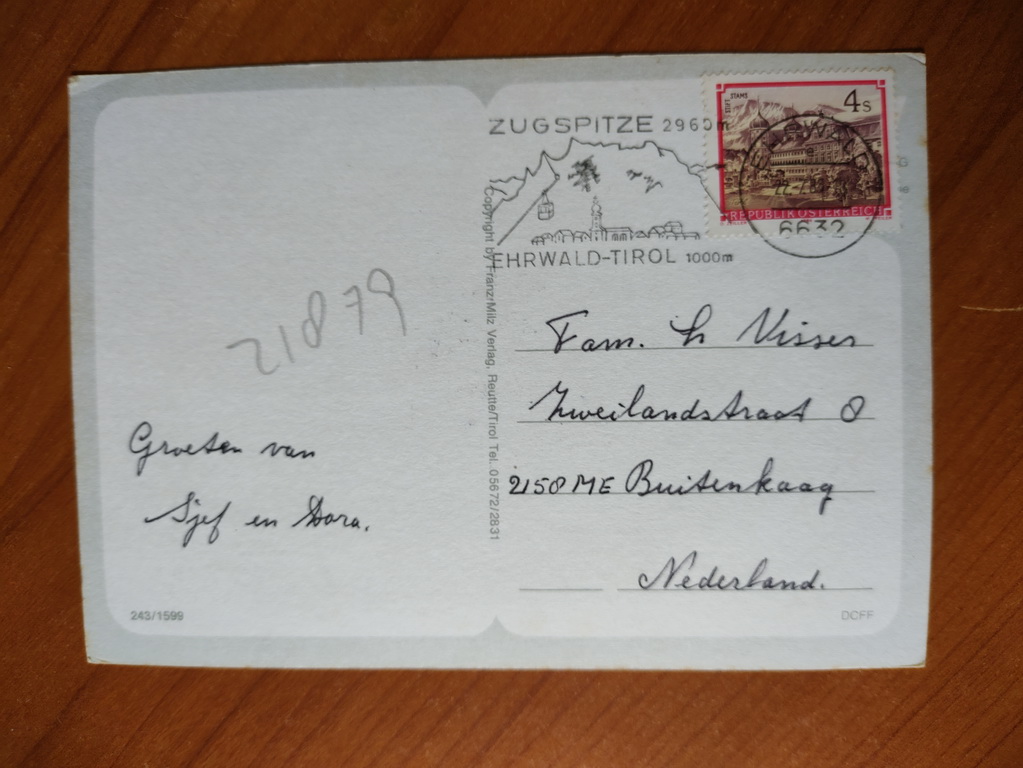 ZUGSPITZE 2960m
EHRWALD-TIROL 1000m
STIFT STAMS
4s
REPUBLIK ÖSTERREICH
EHRWALD
6632
21879
Groeten van
Sjef en Dora.
Copyright by Franz Milz Verlag, Reutte/Tirol Tel. 05672/2831
Fam. h Visser
Zweilandstraat 8
2158 ME Buitenkaag
Nederland.
243/1599
DCFF